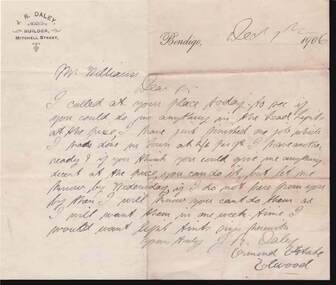 J. R. DALEY,
BUILDER,
MITCHELL STREET,
Bendigo, Dec 1906
Mr Williams
Dear Sir
I called at your place today to see if
you could do me anything in the lead lights
at the price, I have just finished one job which
I had done in
ready & if you think you could give me anything
decent at the price you can do it, but let me
know by Wednesday if I do not hear from you
by then I will know you can't do them as
I will want them in one week time I
would want light tints
Yours truly J. R. Daley
Ormond Estate
Elwood